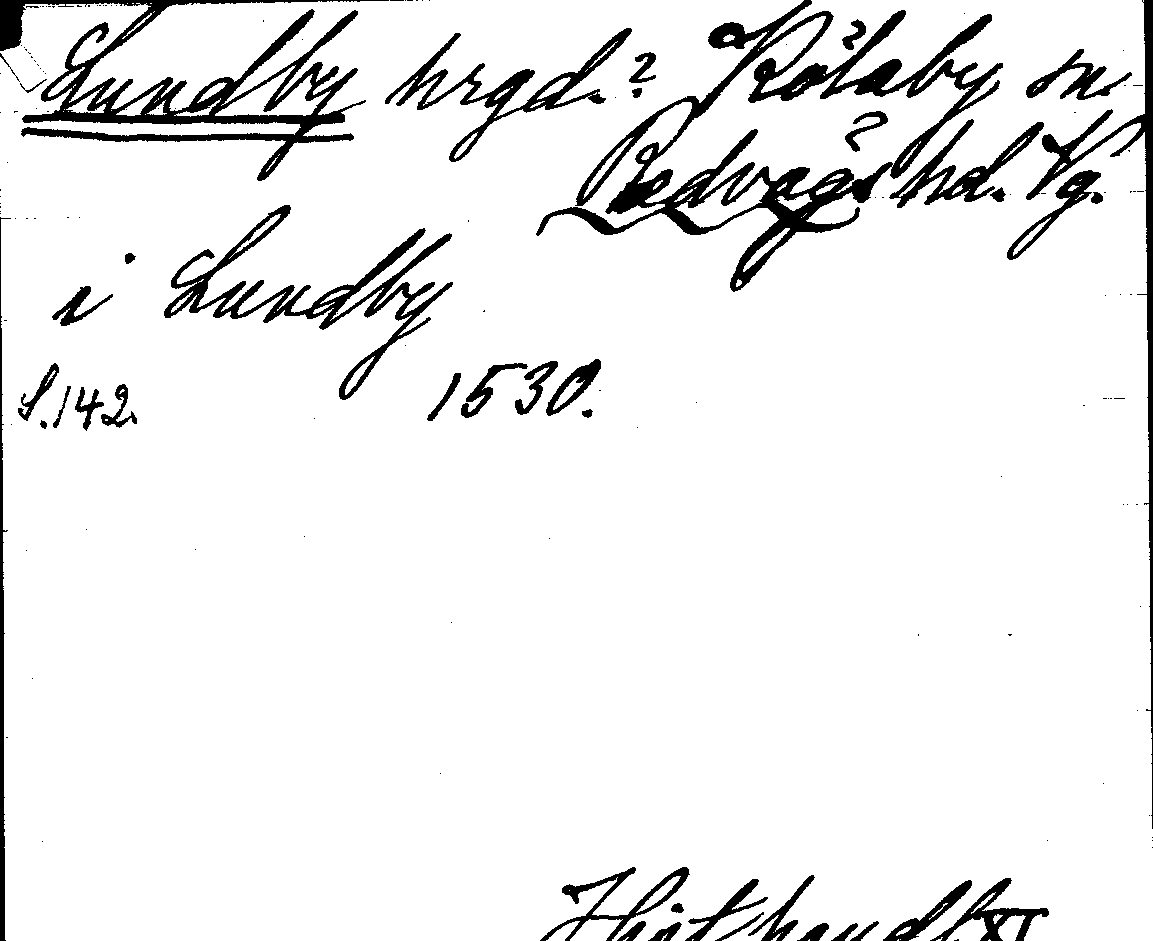 Lundby hrgd.? Kölaby sn.
Redvägs hd. Vg.
i Lundby
S. 142. 1530.
Hist handl XI